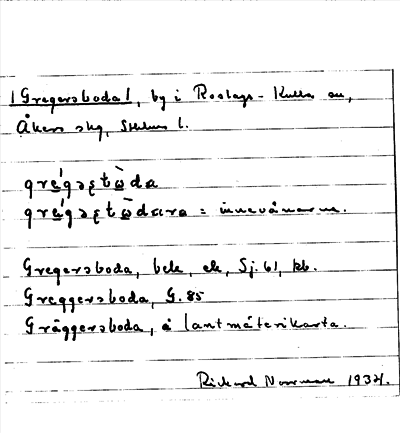 [Gregersboda], by i Roslags-Kulla sn,
Åkers skg, Sthlms l.
gre̱´gəʂtὼ̱da
gre̱´gəʂtὼ̱dara = innevånarne.
Gregersboda, bek, ek, Sj. 61, kb.
Greggersboda, G. 85
Gräggersboda, å lantmäterikarta.
Rickard Norrman 1932.